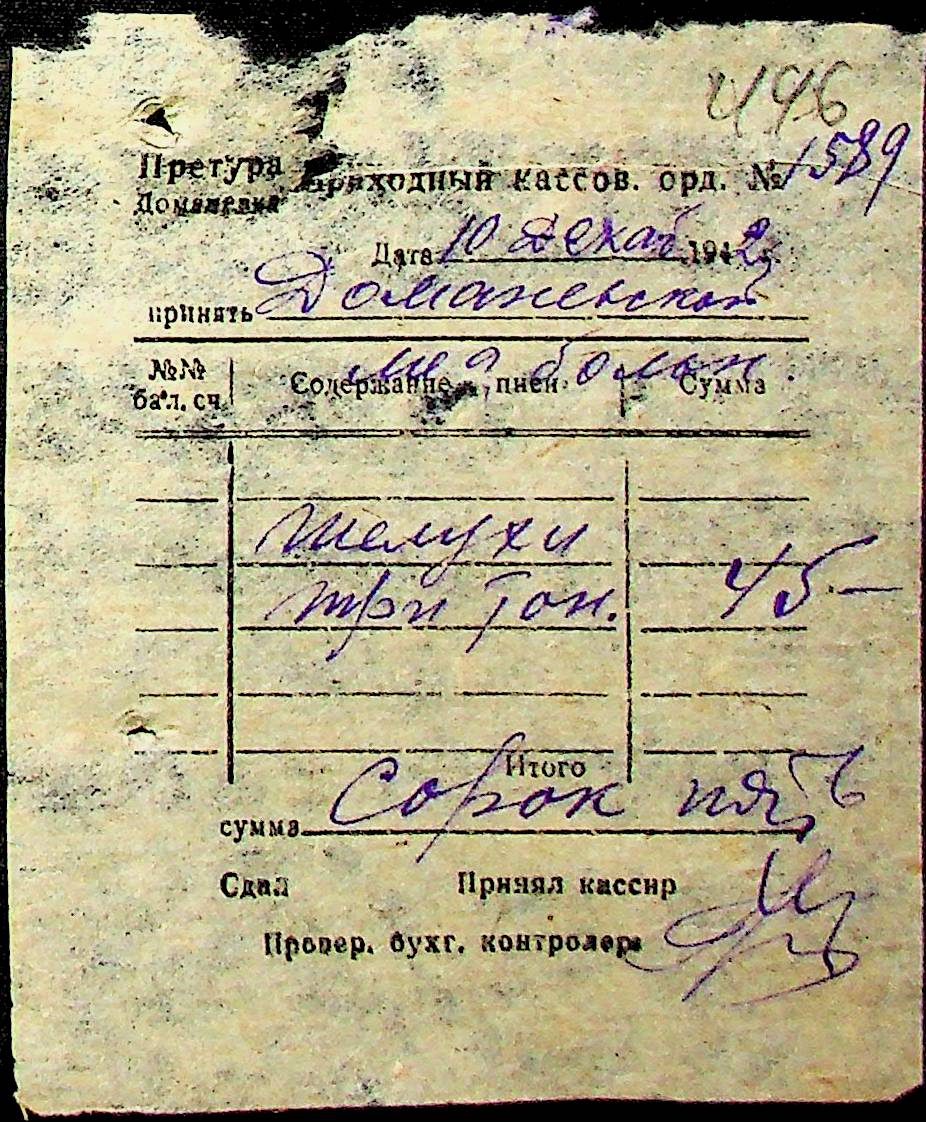 496
Претура Приходный кассов. орд. № 1589
Доманевка
Дата 10 Декаб 1942
принять Доманевской
№№ бал. сч. Содержание Сумма
больн.
Шелухи
три тон. 45—
Итого
сумма Сорок пять
Сдал Принял кассир
Провер. бухг. контролер